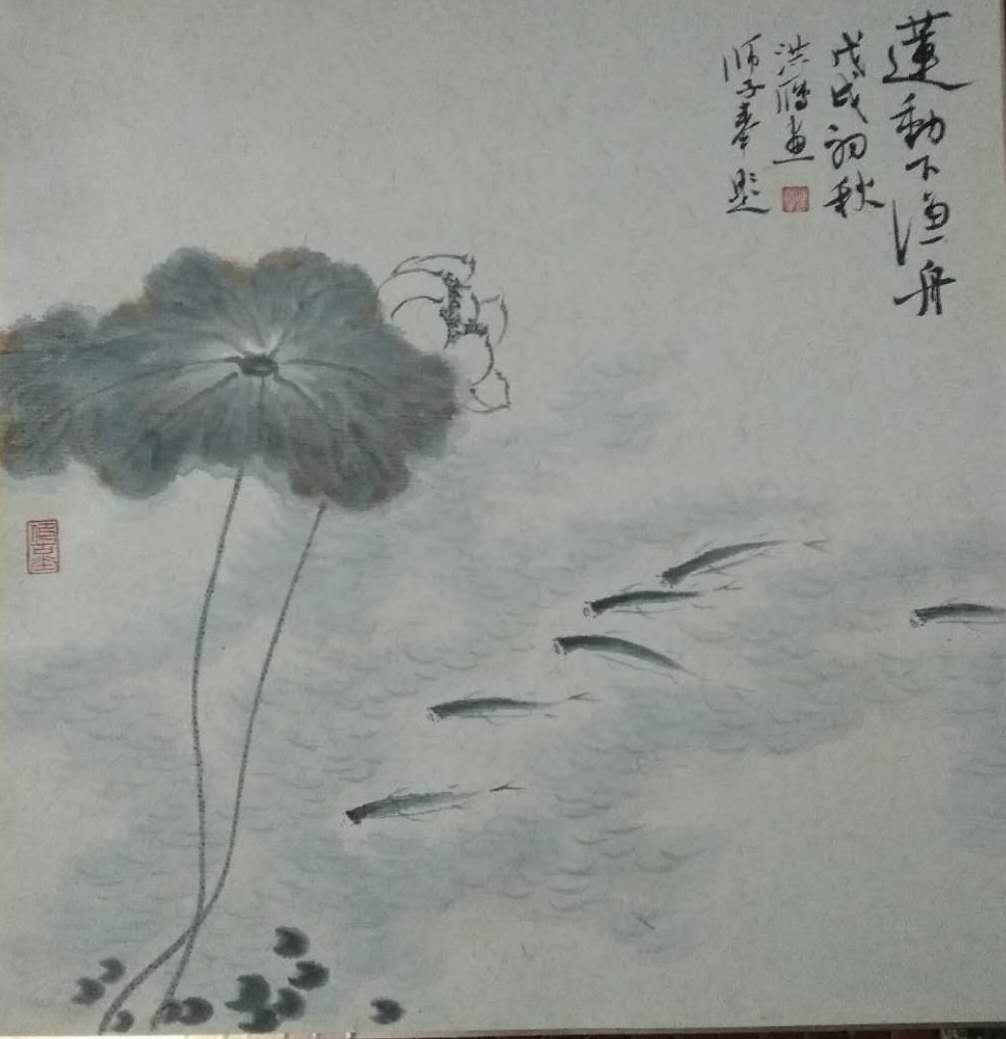 蓮動下漁舟
戊戌初秋
洪雁画
师子奉题